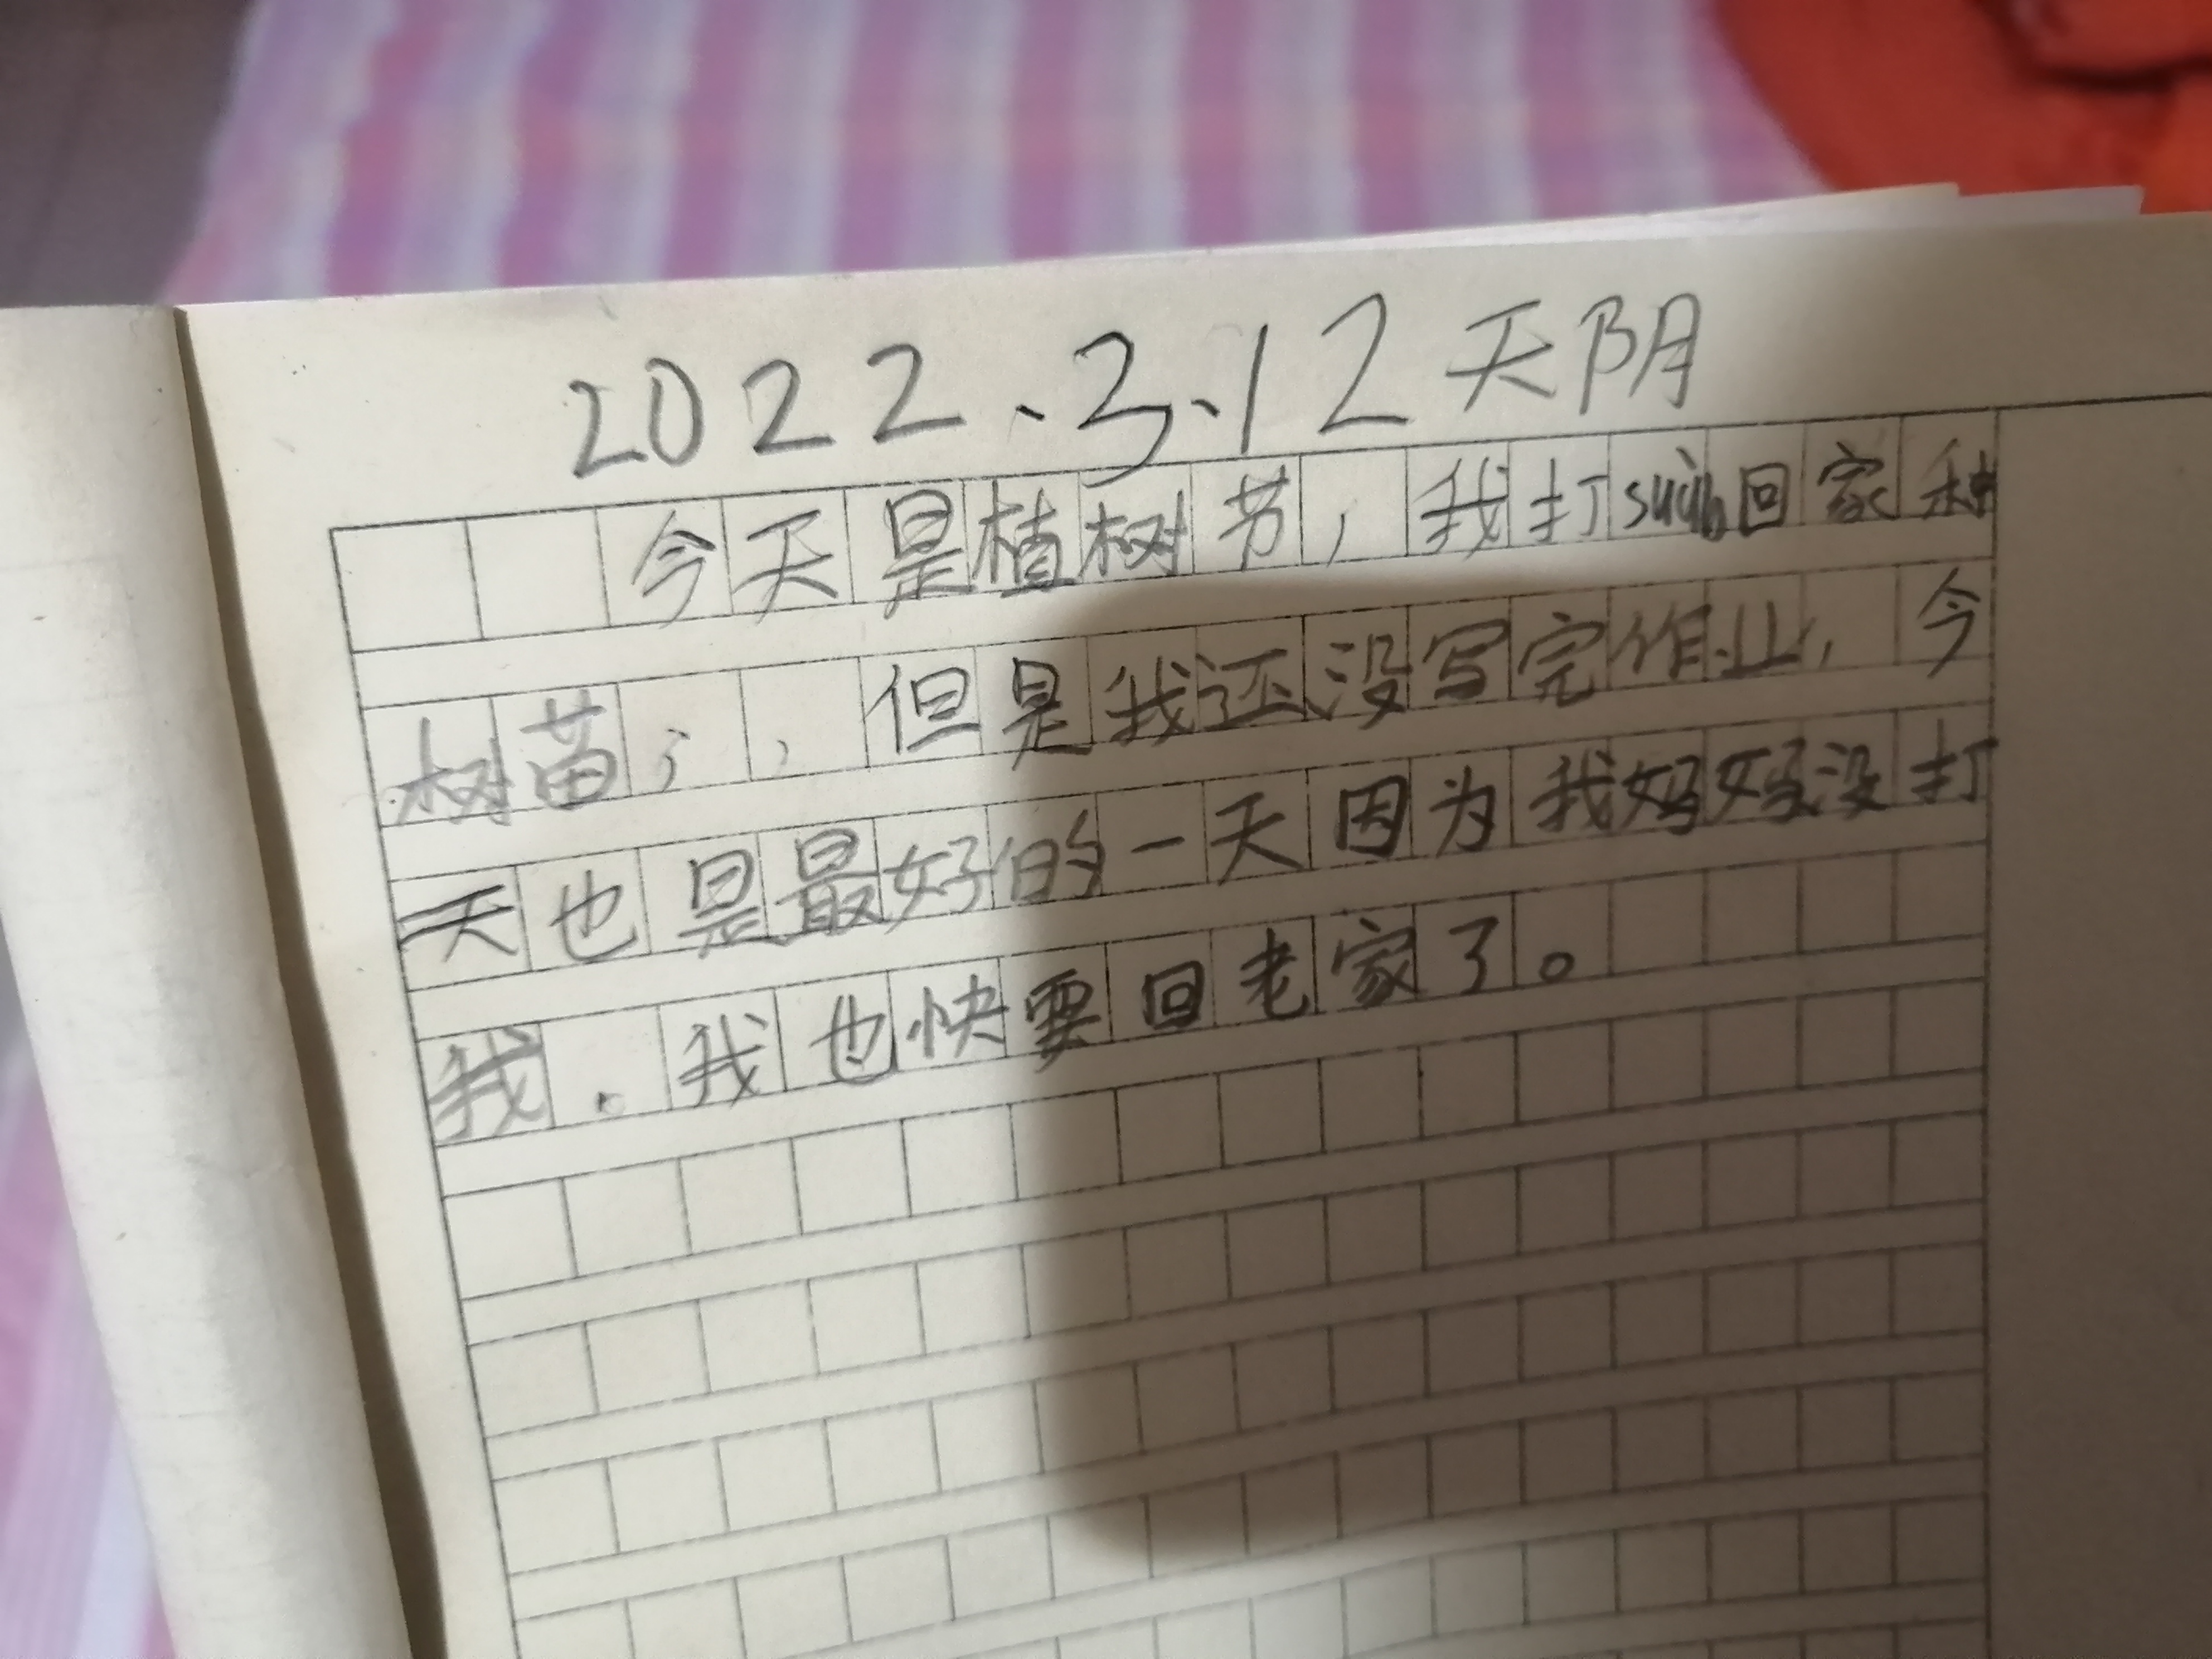 2022.3.12天阴
今天是植树节，我打suàn回家种
树苗，，但是我还没写完作业，今
天也是最好的一天因为我妈妈没打
我．我也快要回老家了。